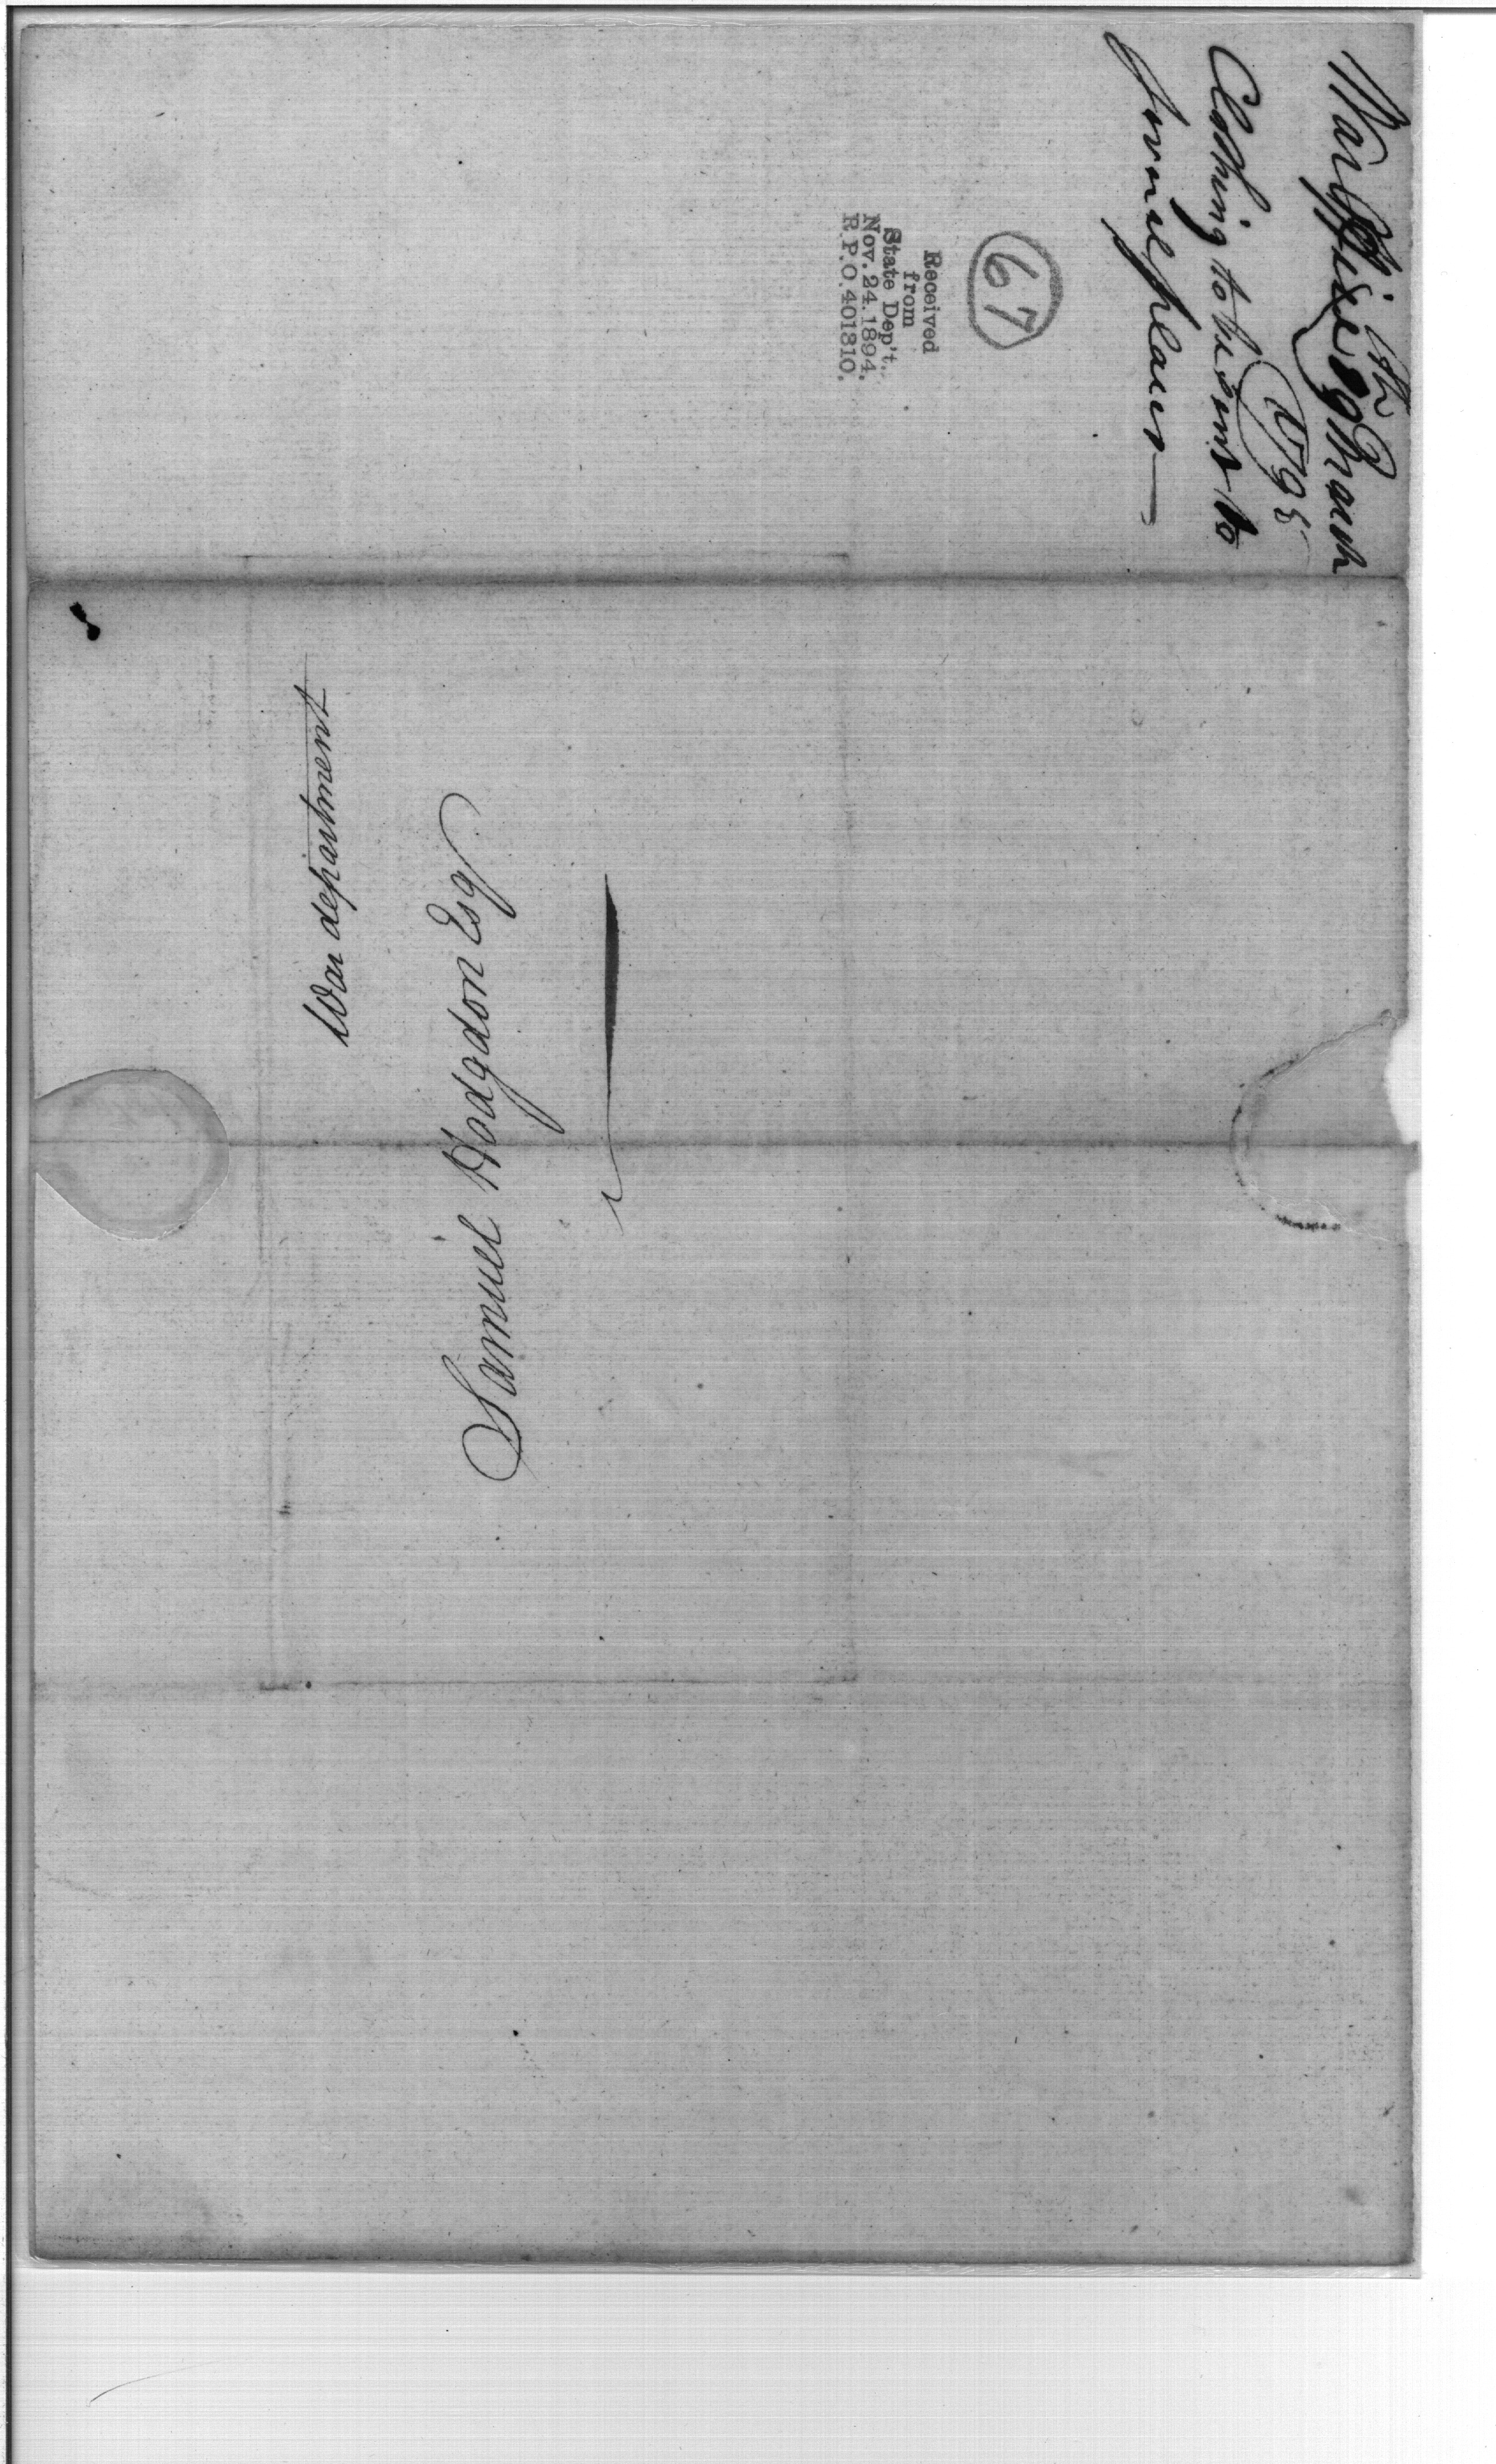 War Office 19th March
1798
Clothing to be sent to
places
67
Received
from
State Dep't.
Nov. 24. 1894.
R.P.O. 401310.
War department
Samuel Hodgdon Esq